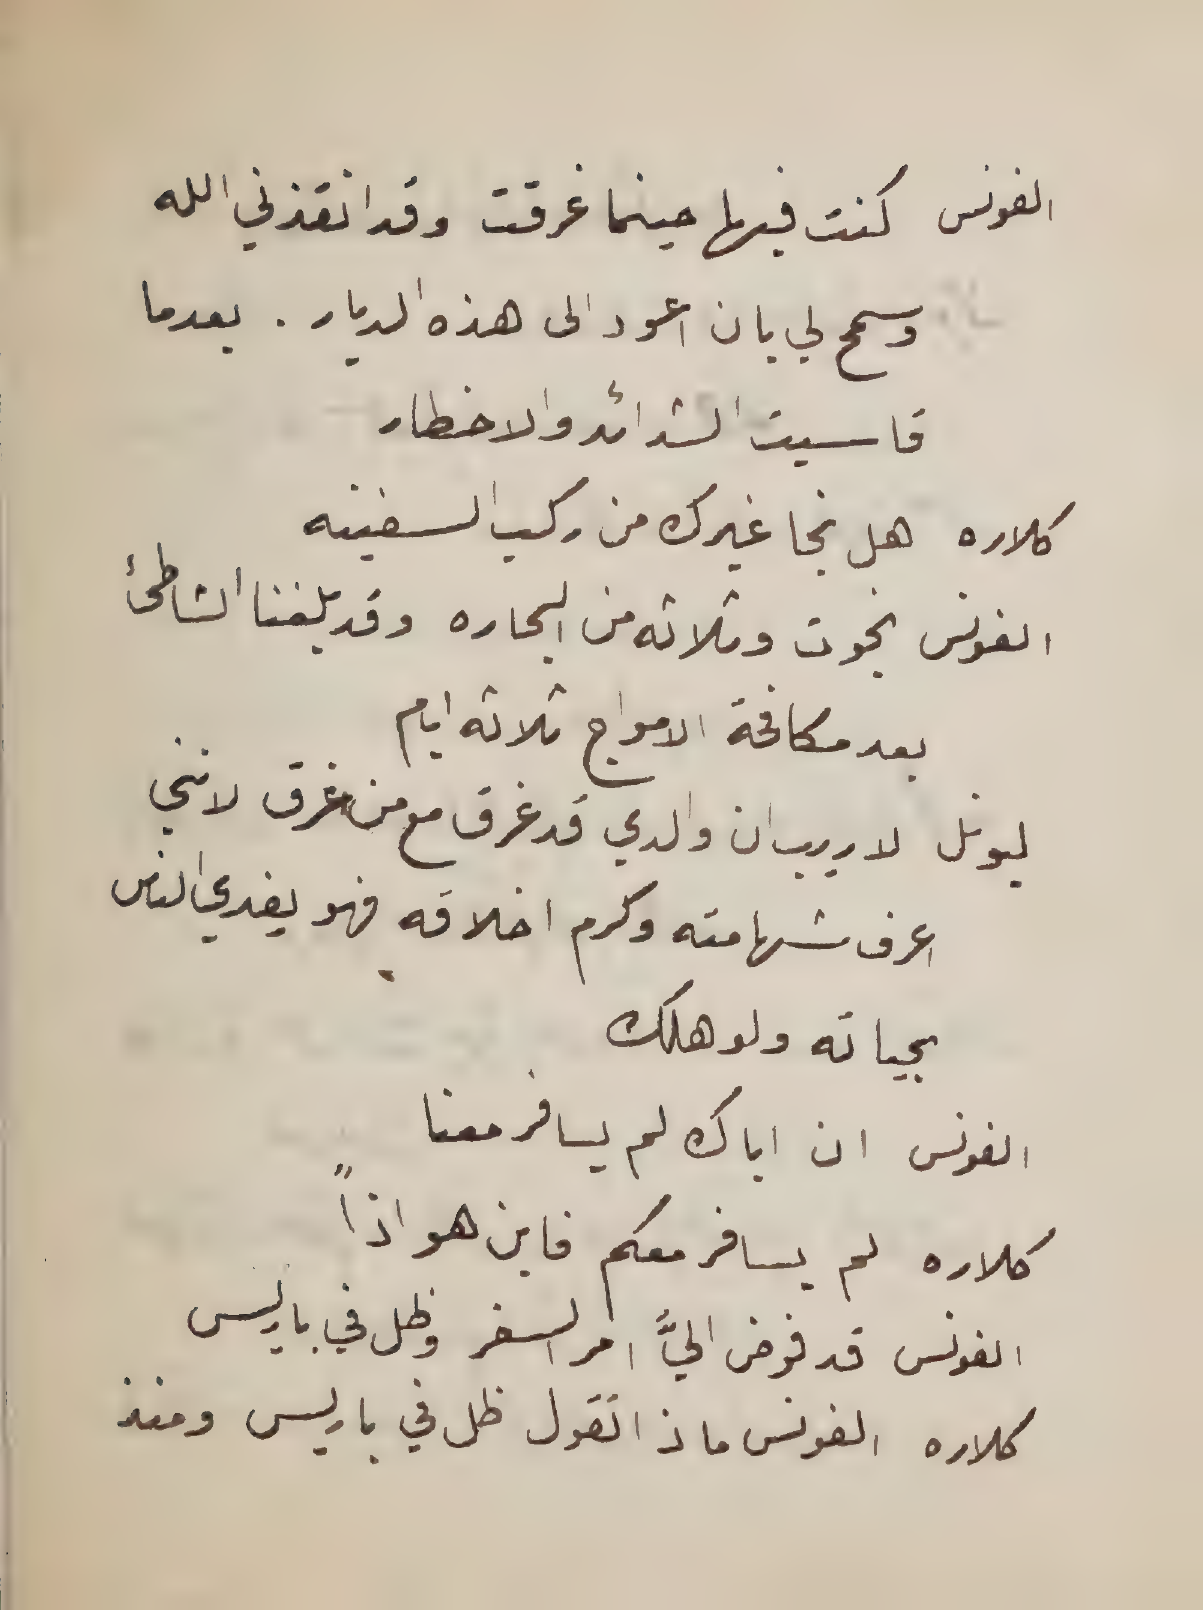 الفونس كنت فيها حينما غرقت وقد انقذني الله
وسمح لي بان اعود الى هذه الديار . بعدما
قاسيت الشدائد والاخطار
كلاره هل نجا غيرك من ركب السفينه
الفونس نجوت وثلاثه من البحاره وقد بلغنا الشاطئ
بعد مكافحة الامواج ثلاثه ايام
ليونل لا ريب ان والدي قد غرق مع من غرق لانني
اعرف شهامته وكرم اخلاقه فهو يفدي الناس
بحياته ولو هلك
الفونس ان اباك لم يسافر معنا
كلاره لم يسافر معكم فاين هو اذاً
الفونس قد فوض اليَّ امر السفر وظل في باريس
كلاره الفونس ماذا تقول ظل في باريس ومنذ